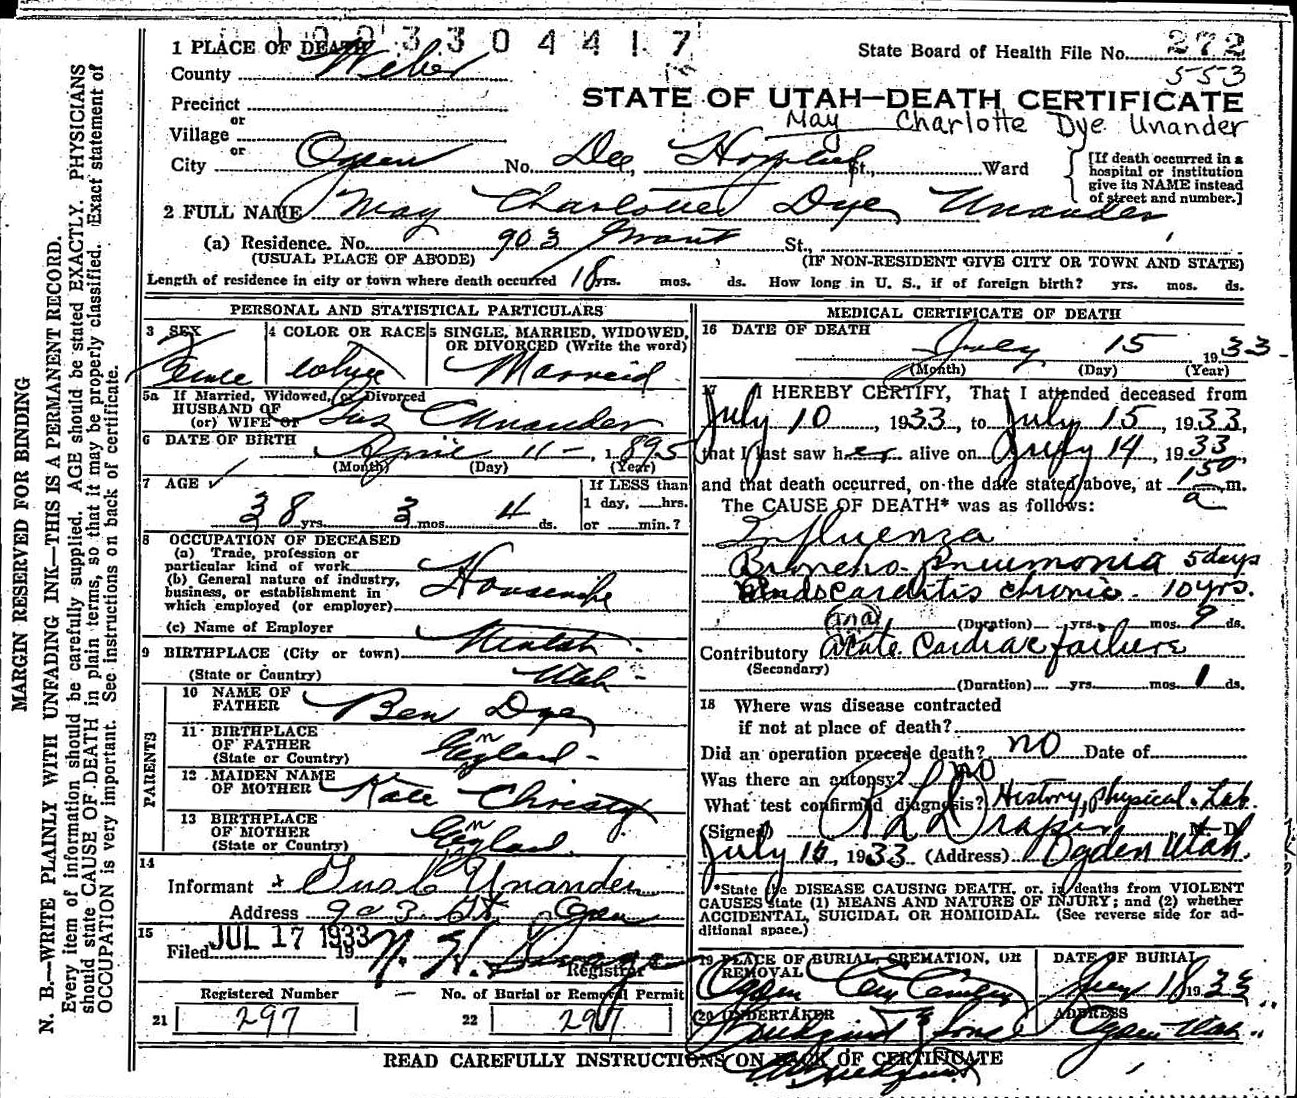 1933304417
1 PLACE OF DEATH
State Board of Health File No. 272
County Weber
553
STATE OF UTAH—DEATH CERTIFICATE
Precinct
or
May Charlotte Dye Unander
Village
or
City Ogden No. Dee Hospital St., Ward
[If death occurred in a
hospital or institution
give its NAME instead
of street and number.]
2 FULL NAME May Charlotte Dye Unander
(a) Residence. No. 903 Grant St.,
(USUAL PLACE OF ABODE) (IF NON-RESIDENT GIVE CITY OR TOWN AND STATE)
Length of residence in city or town where death occurred 18 yrs. mos. ds. How long in U. S., if of foreign birth? yrs. mos. ds.
PERSONAL AND STATISTICAL PARTICULARS
3 SEX 4 COLOR OR RACE 5 SINGLE, MARRIED, WIDOWED,
OR DIVORCED (Write the word)
Female White Married
5a If Married, Widowed, or Divorced
HUSBAND OF
(or) WIFE OF Gus Unander
6 DATE OF BIRTH
April 11 - 1895
(Month) (Day) (Year)
7 AGE ✓
If LESS than
1 day, hrs.
38 yrs. 3 mos. 4 ds. or min.?
8 OCCUPATION OF DECEASED
(a) Trade, profession or
particular kind of work
(b) General nature of industry,
business, or establishment in
which employed (or employer)
Housewife
(c) Name of Employer
9 BIRTHPLACE (City or town) Uintah
(State or Country) Utah -
PARENTS
10 NAME OF
FATHER Ben Dye
11 BIRTHPLACE
OF FATHER
(State or Country) England -
12 MAIDEN NAME
OF MOTHER Kate Christy
13 BIRTHPLACE
OF MOTHER
(State or Country) England.
14
Informant Gus Unander
Address 903 Gt. Ogden
15
Filed JUL 17 1933 19
Registrar
Registered Number No. of Burial or Removal Permit
21 297 22 297
MEDICAL CERTIFICATE OF DEATH
16 DATE OF DEATH
July 15 1933
(Month) (Day) (Year)
17 I HEREBY CERTIFY, That I attended deceased from
July 10, 1933, to July 15, 1933,
that I last saw her alive on July 14, 1933,
and that death occurred, on the date stated above, at 150 a m.
The CAUSE OF DEATH* was as follows:
Influenza
Broncho-Pneumonia 5 days
Endocarditis chronic - 10 yrs.
(Duration) yrs. mos. 9 ds.
and
Contributory acute Cardiac failure
(Secondary)
(Duration) yrs. mos. 1 ds.
18 Where was disease contracted
if not at place of death?
Did an operation precede death? no Date of
Was there an autopsy? no
What test confirmed diagnosis? History, physical. Lab.
(Signed) Draper M. D.
July 1933 (Address) Ogden Utah.
*State the DISEASE CAUSING DEATH, or, in deaths from VIOLENT
CAUSES state (1) MEANS AND NATURE OF INJURY; and (2) whether
ACCIDENTAL, SUICIDAL OR HOMICIDAL. (See reverse side for ad-
ditional space.)
19 PLACE OF BURIAL, CREMATION, OR
REMOVAL
DATE OF BURIAL
Ogden City Cemetery July 18 1933
20 UNDERTAKER ADDRESS
Lindquist & Sons Ogden Utah
READ CAREFULLY INSTRUCTIONS ON BACK OF CERTIFICATE
MARGIN RESERVED FOR BINDING
N. B.—WRITE PLAINLY WITH UNFADING INK—THIS IS A PERMANENT RECORD.
Every item of information should be carefully supplied. AGE should be stated EXACTLY. PHYSICIANS
should state CAUSE OF DEATH in plain terms, so that it may be properly classified. Exact statement of
OCCUPATION is very important. See instructions on back of certificate.